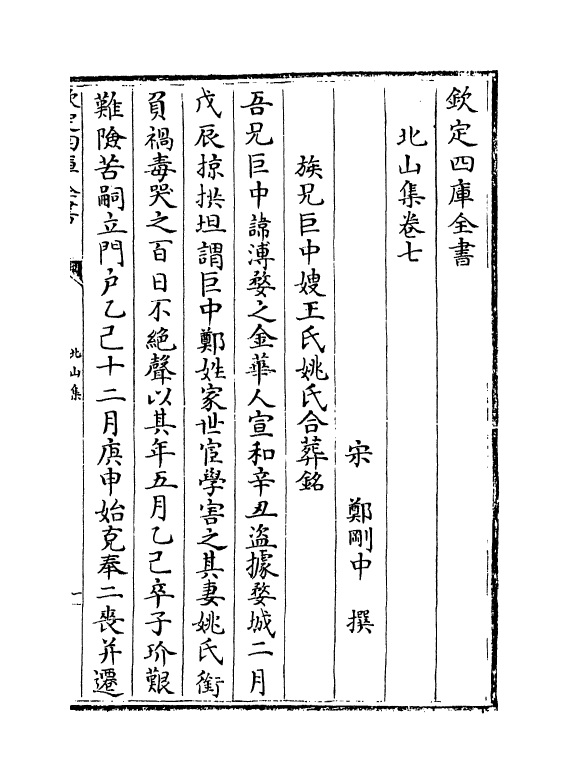 欽定四庫全書
北山集卷七
宋　鄭剛中　撰
族兄巨中嫂王氏姚氏合葬銘
吾兄巨中諱漙婺之金華人宣和辛丑盗據婺城二月
戊辰掠拱坦謂巨中鄭姓家世宦學害之其妻姚氏銜
負禍毒哭之百日不絶聲以其年五月乙己卒子玠艱
難險苦嗣立門户乙己十二月庚申始克奉二喪并遷
欽定四庫全書
北山集
一